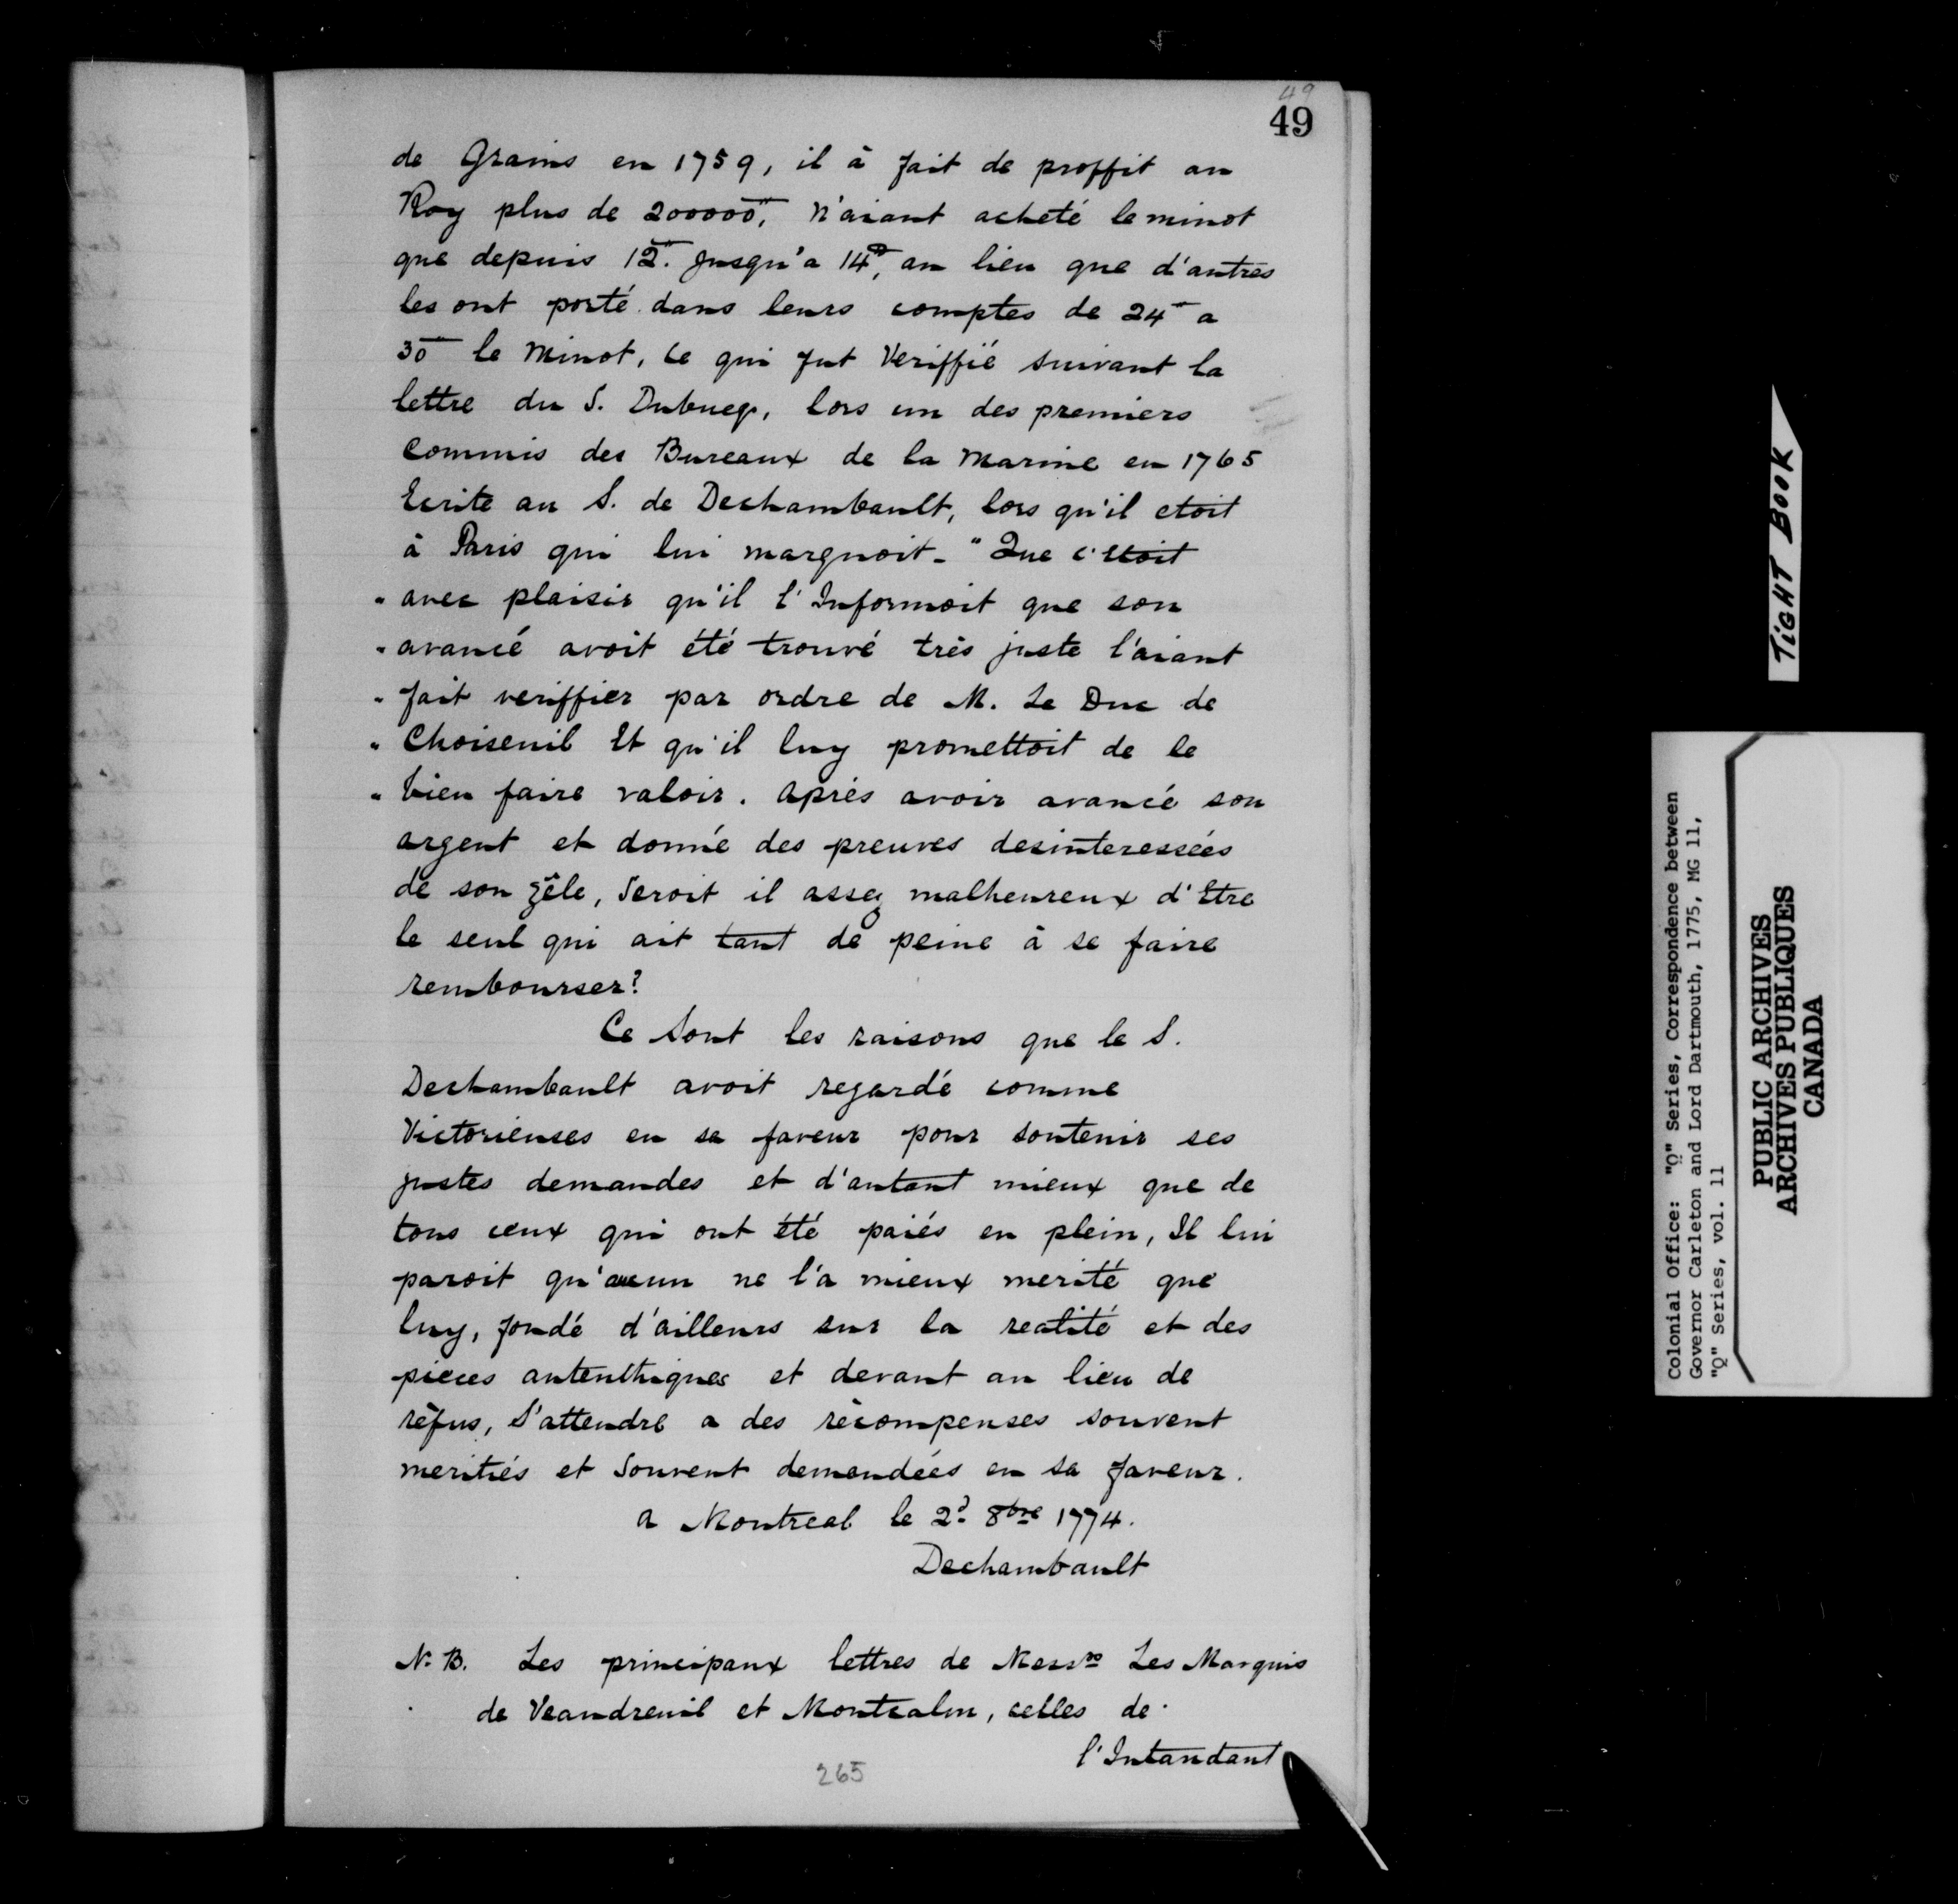 49
49
de Grains en 1759, il à fait de proffit au
Roy plus de 200000", N'aiant acheté le minot
que depuis 12". Jusqu'a 14", au lieu que d'autres
les ont porté dans leurs comptes de 24" a
30" le Minot, Ce qui fut Veriffié suivant la
lettre du S. Dubucq, lors un des premiers
Commis des Bureaux de la Marine en 1765
Ecrite au S. de Dechambault, lors qu'il etoit
à Paris qui lui marquoit - "Que c'Etoit
" avec plaisir qu'il l'Informoit que son
" avancé avoit été trouvé très juste l'aiant
" fait veriffier par ordre de M. Le Duc de
" Choiseuil Et qu'il luy promettoit de le
" bien faire valoir. Après avoir avancé son
argent et donné des preuves desinteressées
de son zêle, Seroit il assez malheureux d'Etre
le seul qui ait tant de peine à se faire
rembourser?
Ce Sont les raisons que le S.
Dechambault avoit regardé comme
Victorieuses en sa faveur pour soutenir ses
justes demandes et d'autant mieux que de
tous ceux qui ont été paiés en plein, Il lui
paroit qu'aucun ne l'a mieux merité que
luy, fondé d'ailleurs sur la realité et des
pieces autenthiques et devant au lieu de
réfus, S'attendre a des récompenses souvent
meritiés et Souvent demandées en sa faveur.
a Montreal le 2d 8bre 1774.
Dechambault
N. B. Les principaux lettres de Messrs Les Marquis
de Veaudreuil et Montcalm, celles de
l'Intandant
265
TIGHT BOOK
Colonial Office: "Q" Series, Correspondence between
Governor Carleton and Lord Dartmouth, 1775, MG 11,
"Q" Series, vol. 11
PUBLIC ARCHIVES
ARCHIVES PUBLIQUES
CANADA